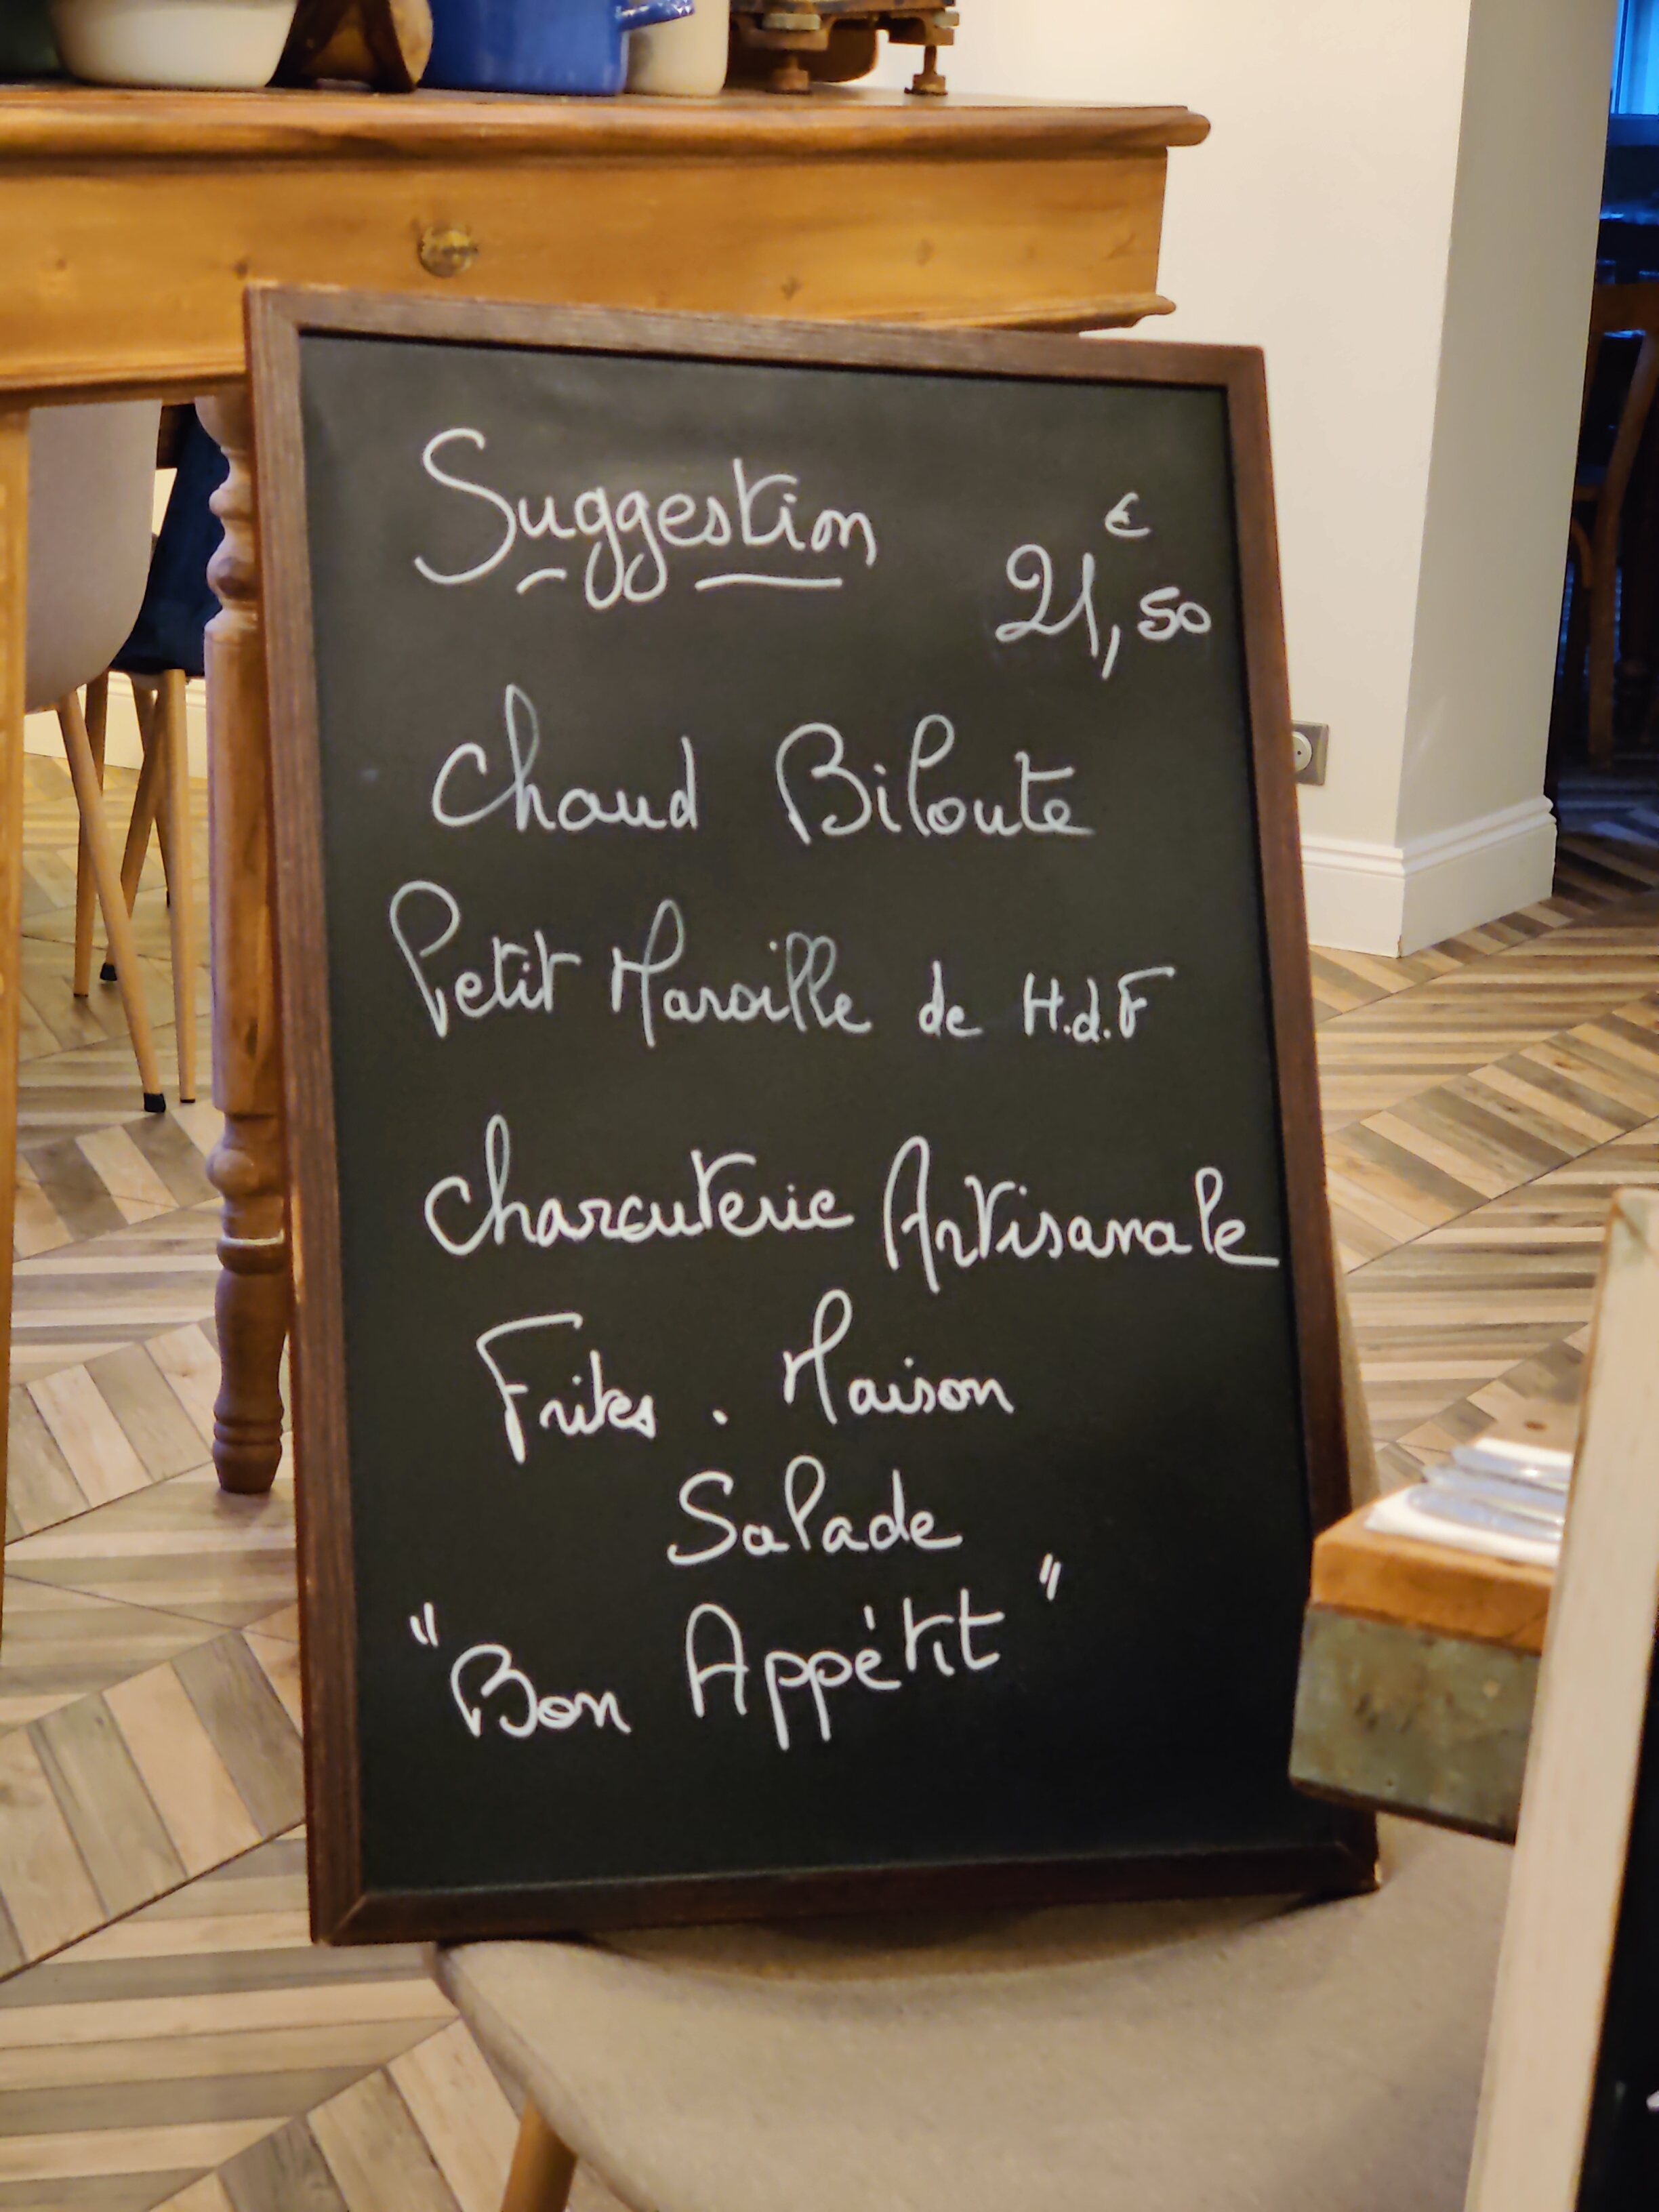 Suggestion
€
21,50
Chaud Biloute
Petit Maroille de H.d.F
Charcuterie Artisanale
Frites . Maison
Salade
"Bon Appétit"